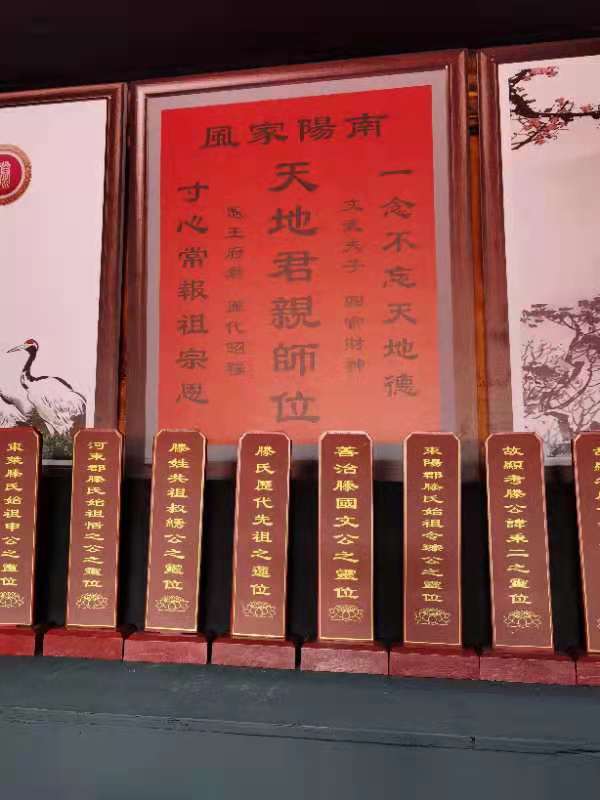 南陽家風
一念不忘天地德
文武夫子 財神
天地君親師位
歷代昭穆
寸心常報祖宗恩
故顯考滕公諱二之靈位
東陽郡滕氏始祖令琮公之靈位
善治滕國文公之靈位
滕氏歷代先祖之蓮位
滕姓共祖叔繡公之靈位
河東郡滕氏始祖恬之公之靈位
東萊滕氏始祖申公之靈位